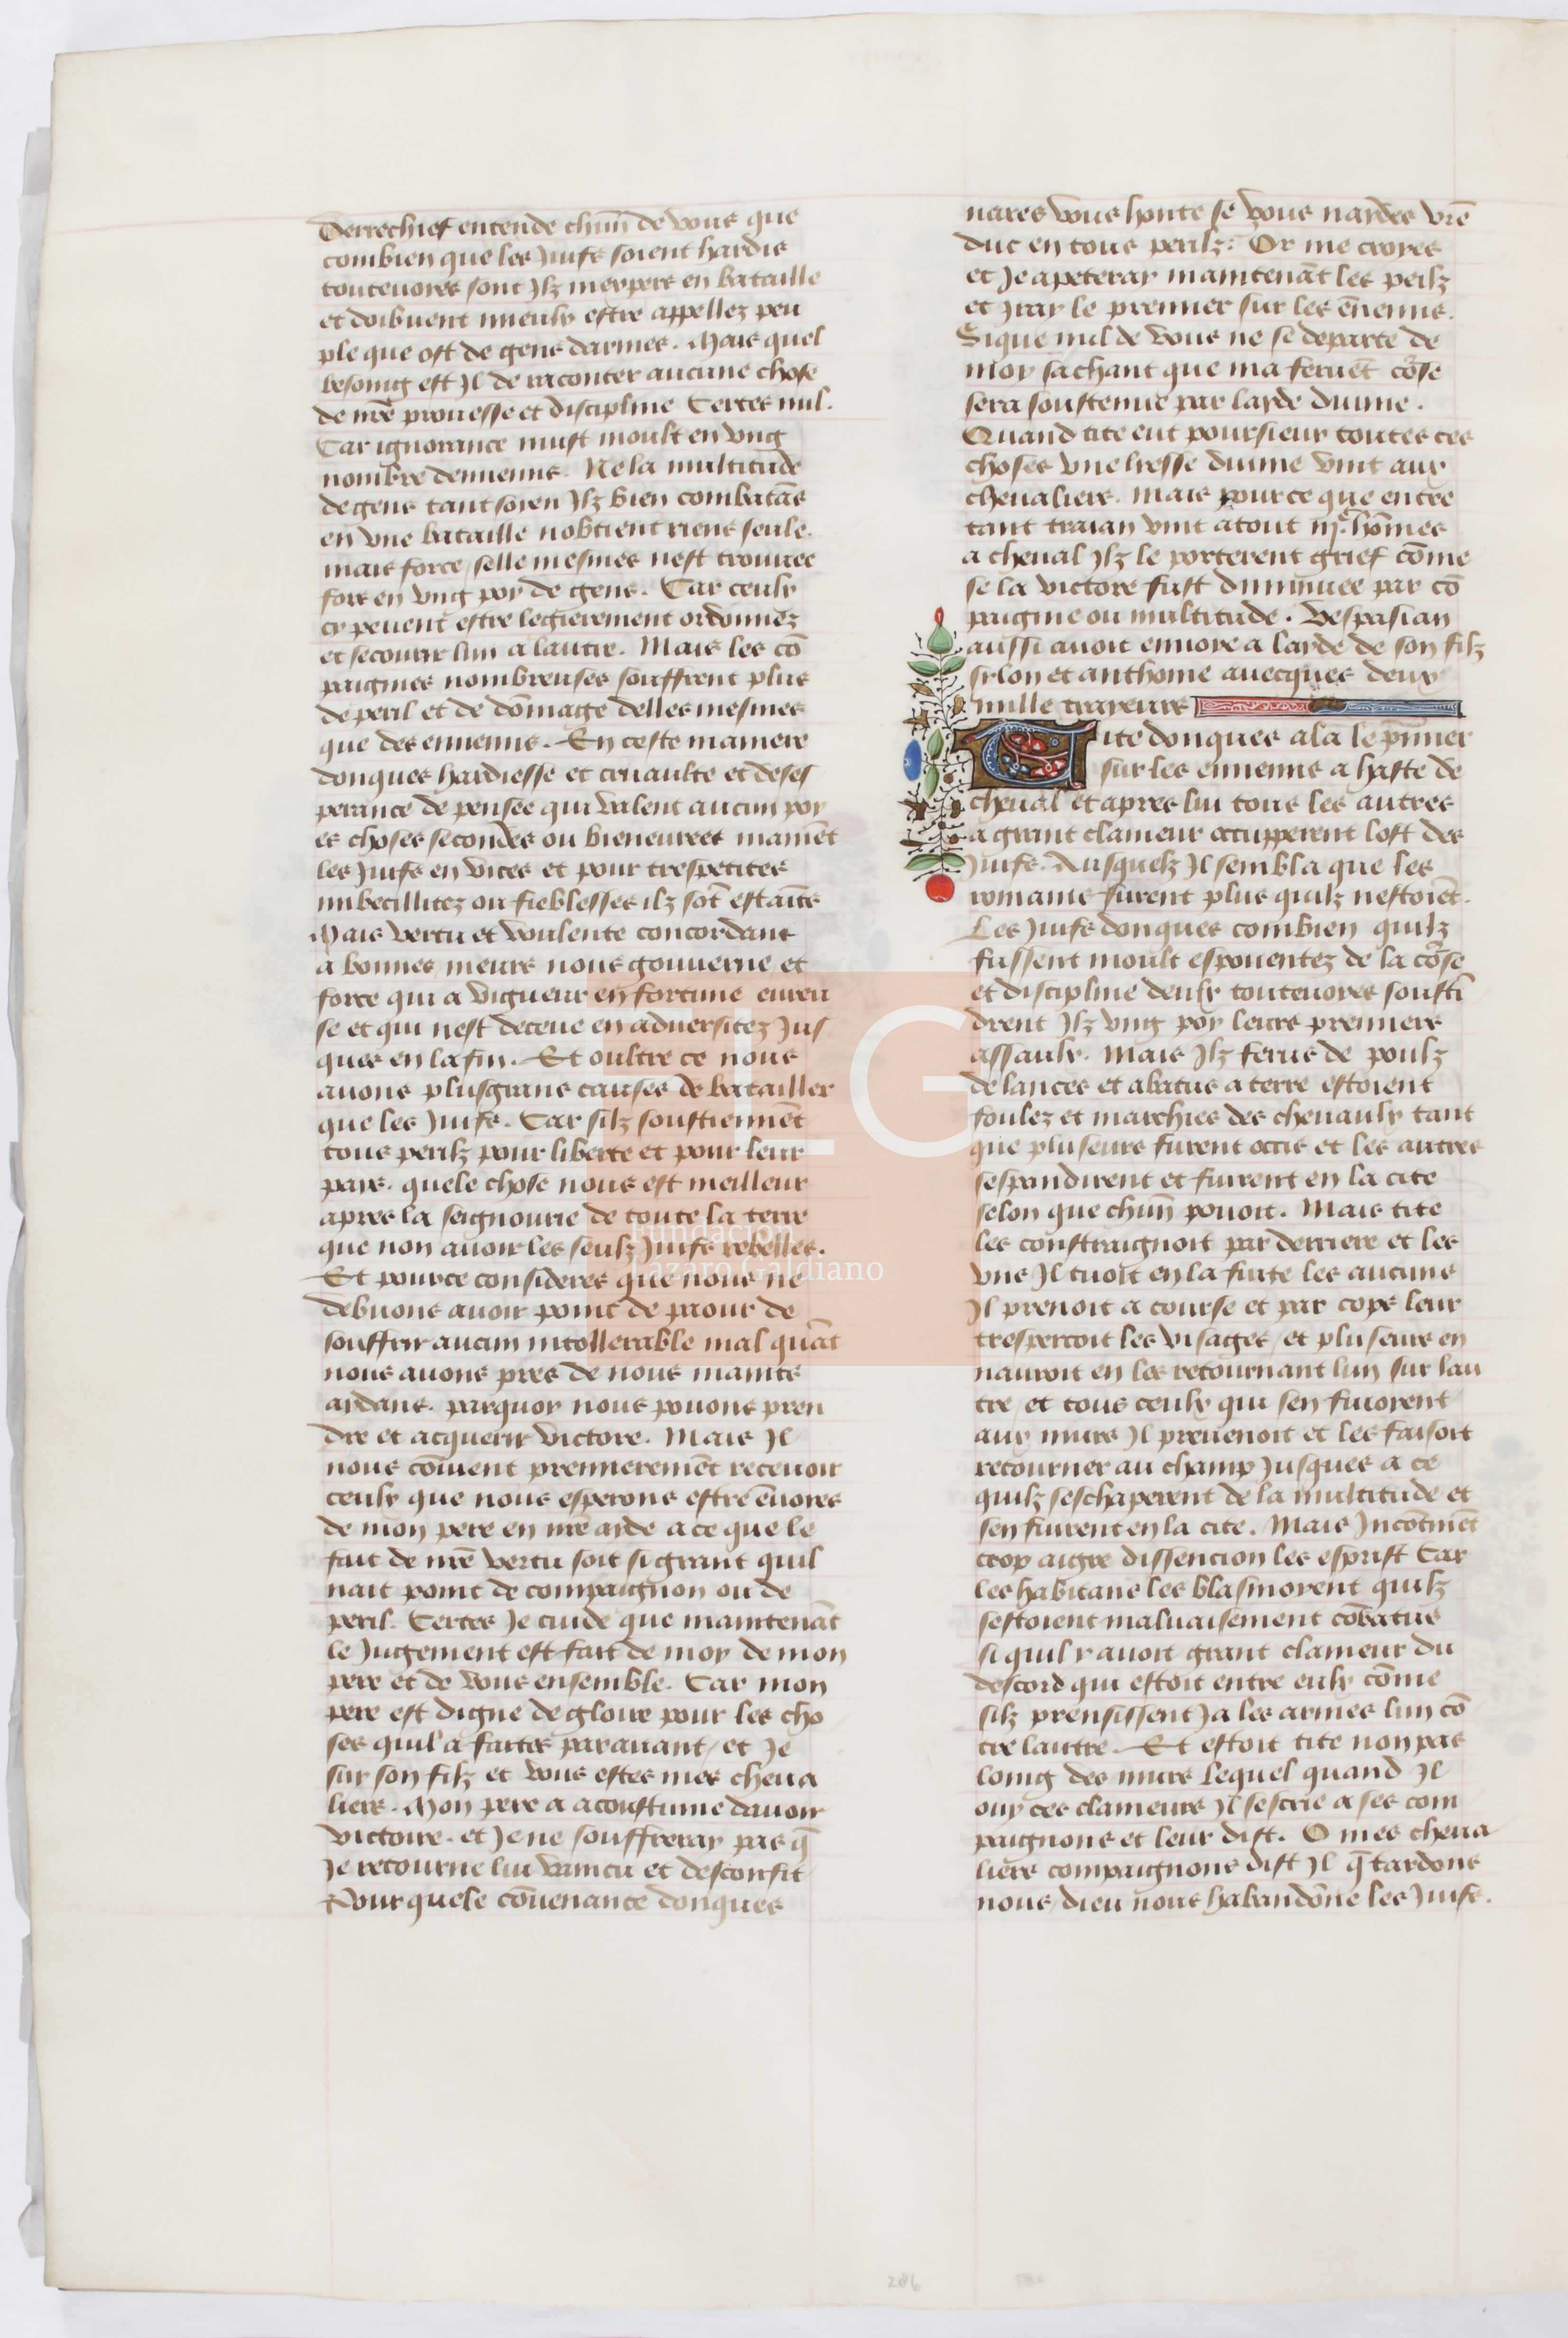 Derrechief entende chūn de vous que
combien que les Juifs soient hardis
toutevoies sont Ilz mespers en bataille
et doibuent mieulx estre appellez peu
ple que ost de gens darmes. Mais quel
besoing est Il de raconter aucune chose
de nrē prouesse et discipline Certes nul.
Car ignorance nuist moult en vng
nombre dennemis. Ne la multitude
de gens tant soien Ilz bien combatās
en vne bataille nobtient riens seule.
mais force / selle mesmes nest trouuee
fors en vng poy de gens. Car ceulx
cy peuent estre legierement ordonnez
et secourir lun a lautre. Mais les cō
paignies nombreuses souffrent plus
de peril et de dōmage delles mesmes
que des ennemis. En ceste maniere
donques hardiesse et cruaulte et deses
perance de pensee qui valent aucun poy
es choses secondes ou bieneurees mainēt
les Juifs en vices et pour trespetites
imbecillitez ou fieblesses ilz sōt estaīts
Mais vertu et voulente concordant
a bonnes meurs nous gouuerne et
force qui a vigueur en fortune eureu
se et qui nest deceue en aduersitez Jus
ques en la fin. Et oultre ce nous
auons plusgrans causes de batailler
que les Juifs. Car silz soustiennēt
tous perilz pour liberte et pour leur
pays. quele chose nous est meilleur
apres la seignourie de toute la terre
que non auoir les seulz Juifs rebelles.
Et pource consideres que nous ne
debuons auoir point de paour de
souffrir aucun intollerable mal quāt
nous auons pres de nous maints
aydans. parquoy nous pouons pren
dre et acquerir victore. Mais Il
nous cōuient premierement receuoir
ceulx que nous esperons estre ēuoies
de mon pere en nrē ayde a ce que le
fait de nrē vertu soit si grant quil
nait point de compaignon ou de
peril. Certes Je cuide que maintenāt
le Jugement est fait de moy de mon
pere et de vous ensemble. Car mon
pere est digne de gloire pour les cho
ses quil a faites parauant / et Je
suy son filz et vous estes mes cheua
liers. Mon pere a acoustume dauoir
victoire. et Je ne souffreray pas q̄
Je retourne lui vaincu et desconfit
Pour quele cōuenance donques
nares vous honte se vous naydes vrē
duc en tous perilz: Or me croyes
et Je apeteray maintenāt les perilz
et Jray le premier sur les ēnemis.
Si que nul de vous ne se departe de
moy sachant que ma feruēt cōrse
sera soustenue par layde diuine.
Quand tite eut poursieuy toutes ces
choses vne liesse diuine vint aux
cheualiers. Mais pource que entre
tant traian vint atout iiijc hōmes
a cheual Ilz le porterent grief cōme
se la victore fust diminuee par cō
paignie ou multitude. Vespasian
aussi auoit enuoie a layde de son filz
sylon et anthoine auecques deux
mille traieurs
Tite donques ala le prīmier
sur les ennemis a haste de
cheual et apres lui tous les autres
a grant clameur occupperent lost des
Juifs. Ausquelz Il sembla que les
romains furent plus quilz nestoiēt.
Les Juifs donques combien quilz
fussent moult espouentez de la cōrse
et discipline deulx toutevoies sousti
drent Ilz vng poy leurs premiers
assaulx. Mais Ilz ferus de poulz
de lances et abatus a terre estoient
foulez et marchies des cheuaulx tant
que pluseurs furent occis et les autres
sespandirent et fuirent en la cite
selon que chūn pouoit. Mais tite
les constraignoit par derriere et les
vns Il tuoit en la fuite les aucuns
Il prenoit a course et par cops leur
tresperçoit les visages / et pluseurs en
nauroit en les retournant lun sur lau
tre / et tous ceulx qui sen fuioient
aux murs Il preuenoit et les faisoit
retourner au champ Jusques a ce
quilz seschaperent de la multitude et
sen fuirent en la cite. Mais Incōtinēt
trop aigre dissencion les esprist Car
les habitans les blasmoient quilz
sestoient maluaisement cōbatus
si quil y auoit grant clameur du
descord qui estoit entre eulx cōme
silz prensissent Ja les armes lun cō
tre lautre. Et estoit tite non pas
loing des murs lequel quand Il
ouy ces clameurs Il sescrie a ses com
paignons et leur dist. O mes cheua
liers compaignons dist Il q̄ tardons
nous / dieu nous habandōne les Juifs.
LG
Fundación
Lázaro Galdiano
286